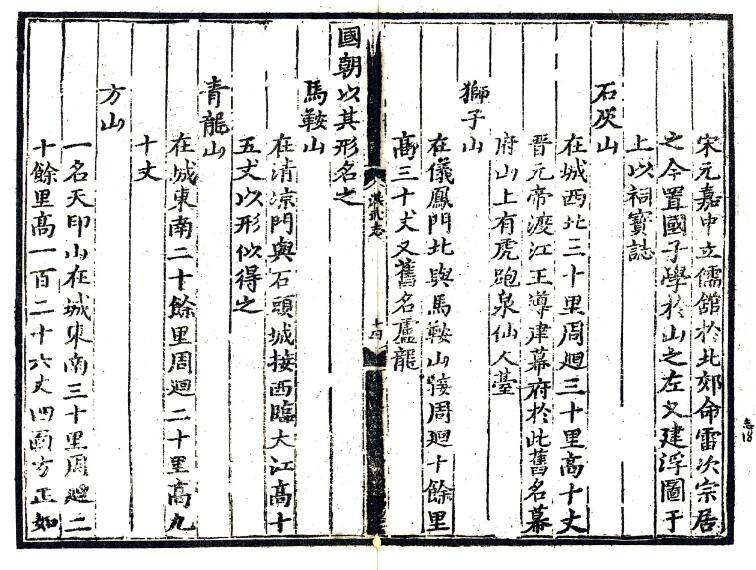 宋元嘉中立儒舘於北郊命雷次宗居
之今置國子學於山之左又建浮圖于
上以祠寳誌
石灰山
在城西北三十里周廻三十里高十丈
晉元帝渡江王導建幕府於此舊名幕
府山上有虎跑泉仙人臺
獅子山
在儀鳳門北與馬鞍山接周廻十餘里
高三十丈又舊名盧龍
洪武志
十四
國朝以其形名之
馬鞍山
在清凉門與石頭城接西臨大江高十
五丈以形似得之
青龍山
在城東南二十餘里周廻二十里高九
十丈
方山
一名天印山在城東南三十里周廻二
十餘里高一百二十六丈四面方正如